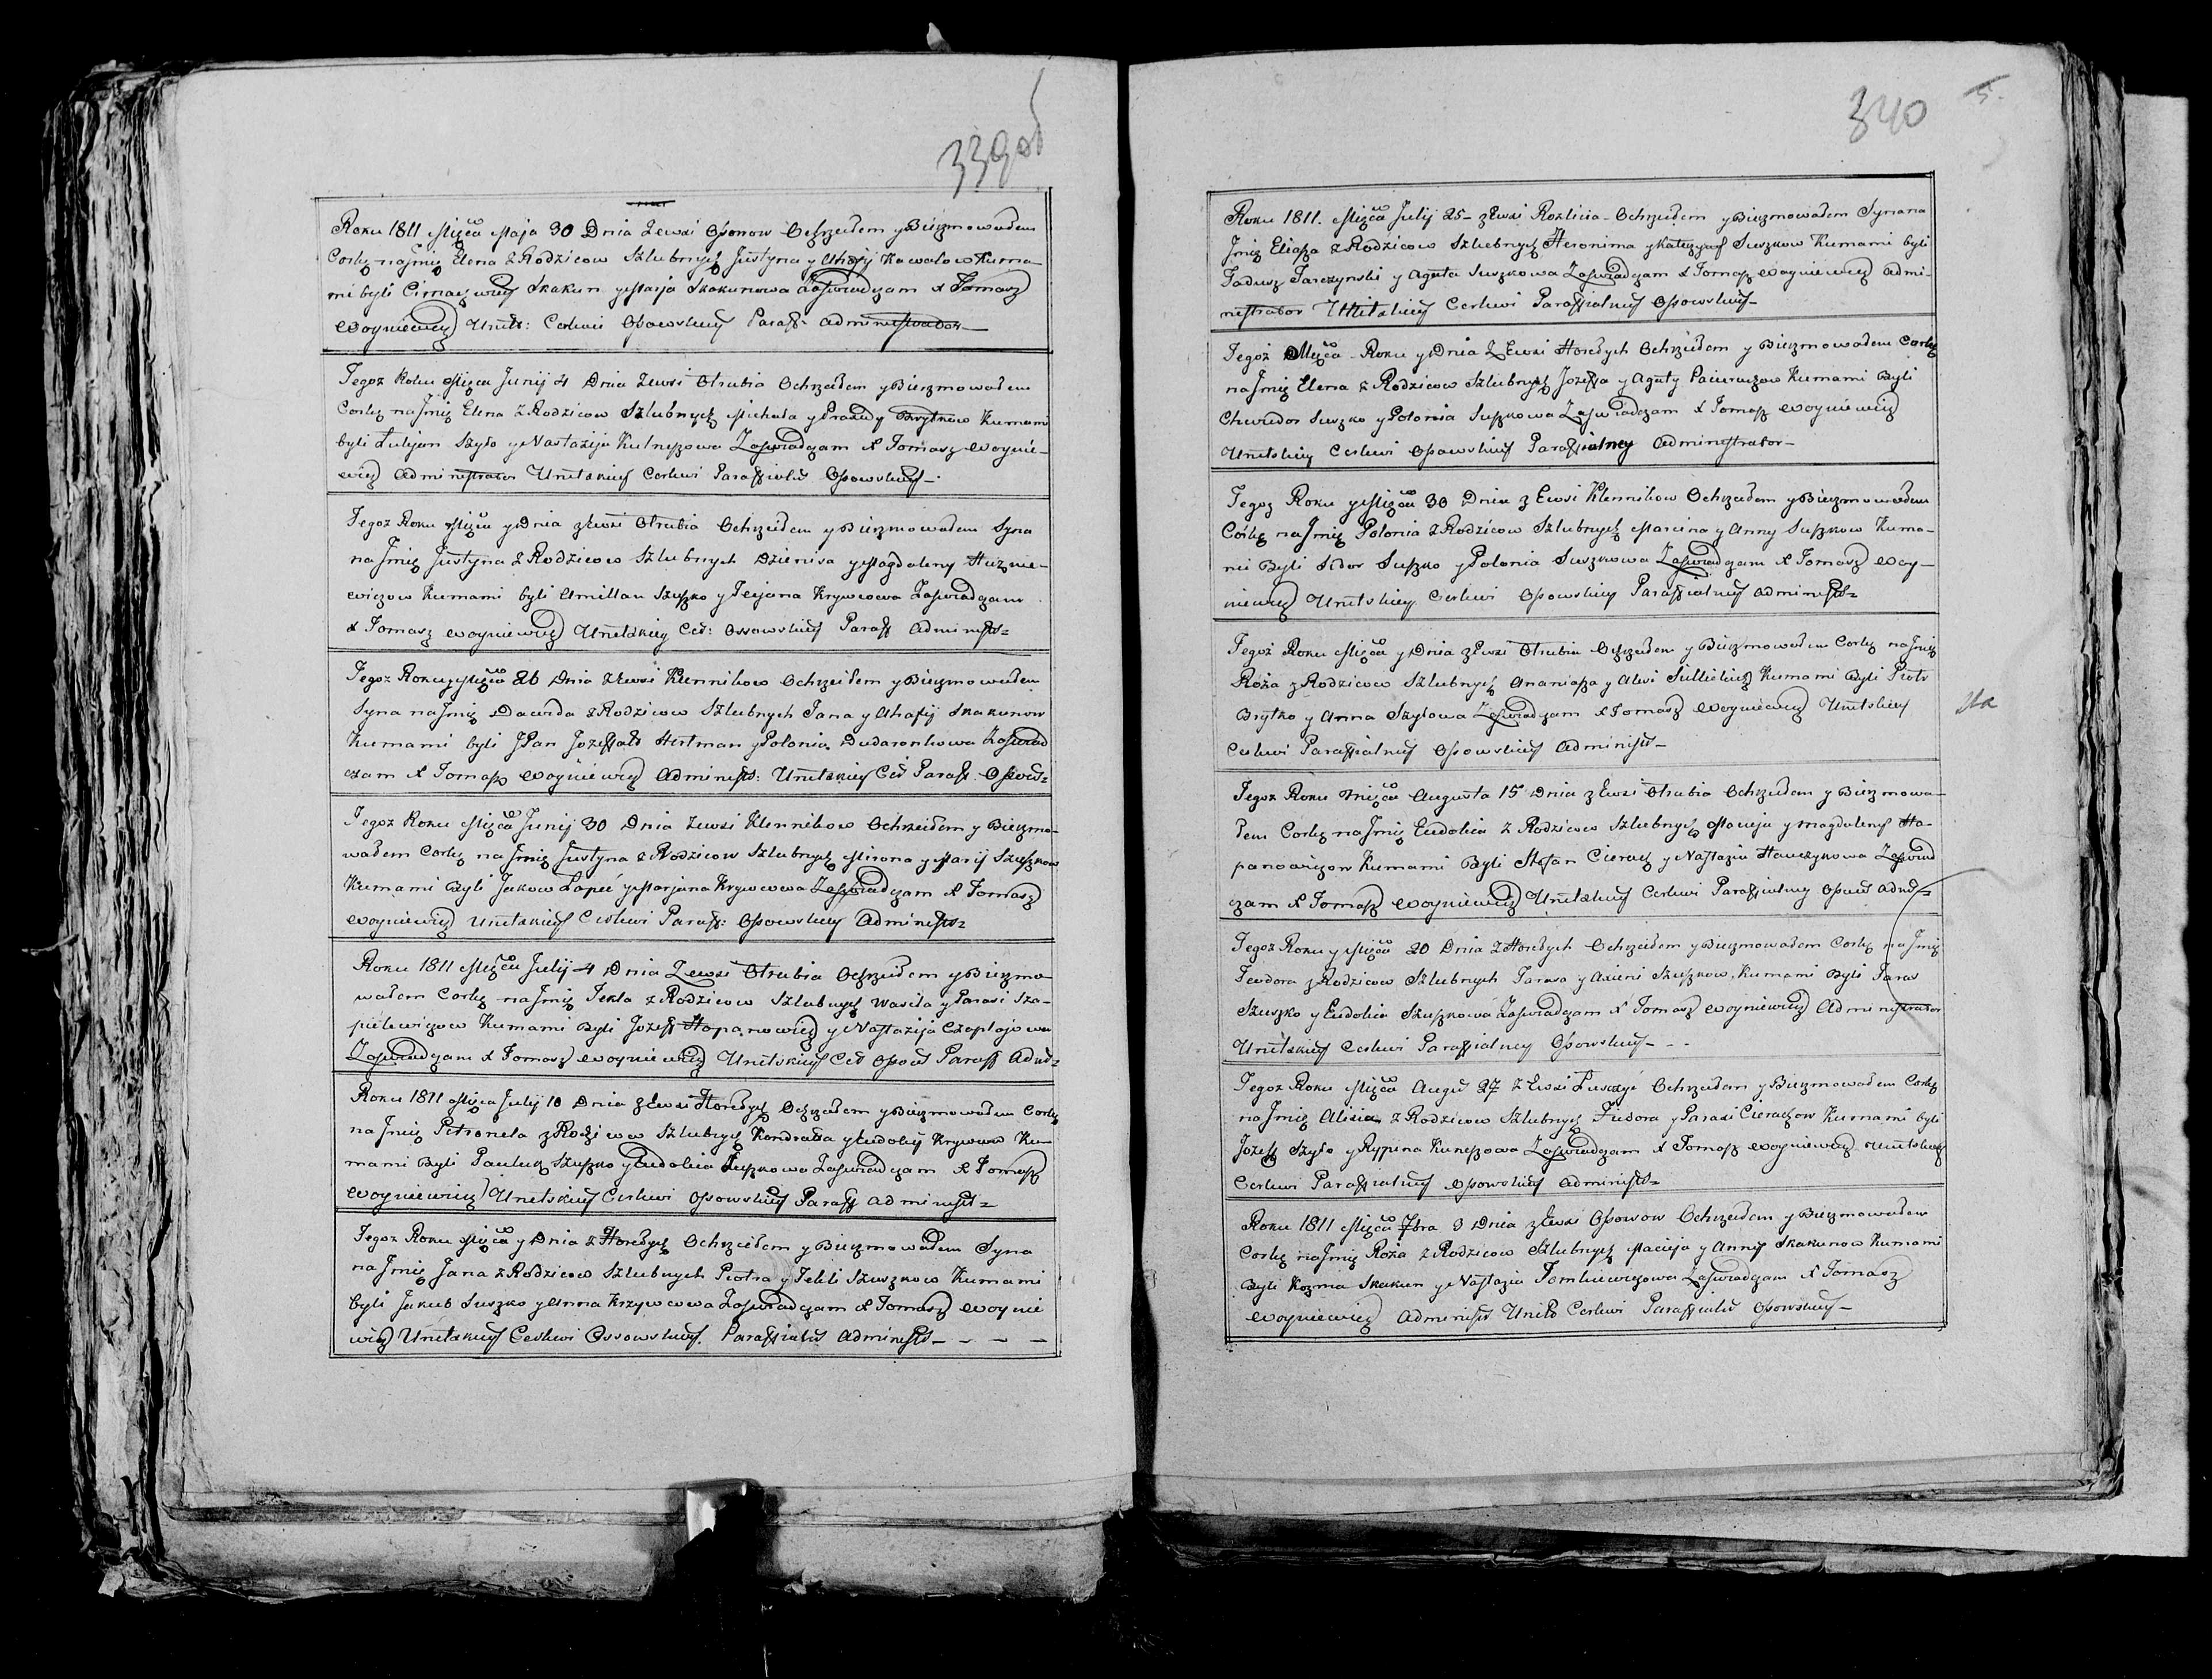 339об
Roku 1811 Mięca Maja 30 Dnia zewsi Osowow Ochrzciłem y Bierzmowałem
Corkę na Jmię Elena z Rodzicow Szlubnych Justyna y Ahafij Kuma-
mi byli Skakun y Marja Skakunowa Zaświadczam X Tomasz
Woyniewicz Units: Cerkwi Osowskiey Paraff: Administrator
Tegoż Roku Mięca Junij 4 Dnia zewsi Otrubia Ochrzciłem y Bierzmowałem
Corkę na Jmię Elena z Rodzicow Szlubnych Michała y Praxedy Brytkow Kumami
byli Lulijan Szyło y Nastazija Zaświadczam X Tomasz Woynie-
wicz Administrator Unitskiey Cerkwi Paraffialn Osowskiey
Tegoż Roku Mięca y Dnia z Ewsi Otrubia Ochrzciłem y Bierzmowałem Syna
na Jmię Justyna z Rodzicow Szlubnych Dzienisa y Magdaleny Huznie-
wiczow Kumami byli Amillan Szuszko y Tecjana Krywcowa Zaświadczam
X Tomasz Woyniewicz Unitskiey Cer: Ossowskiey Paraff Administr=
Tegoż Roku y Mięca 26 Dnia zEwsi Klennikow Ochrzciłem y Bierzmowałem
Syna na Jmię Dawida z Rodzicow Szlubnych Jana y Ahafij Skakunow
Kumami byli JPan Jozeffat Hertman y Polonia Dudaronkowa Zaświad
czam X Tomasz Woyniewicz Administr: Unitskiey Cer Paraff: Osows=
Tegoż Roku Mięca Junij 30 Dnia zewsi Klennikow Ochrzciłem y Bierzmo-
wałem Corkę na Jmię Justyna z Rodzicow Szlubnych Mirona y Marij Szuszkow
Kumami Byli Jakow Łapeć y Marjana Krywcowa Zaświadczam X Tomasz
Woyniewicz Unitskiey Cerkwi Paraff: Osowskiey Administr=
Roku 1811 Mięca Julij 4 Dnia Zewsi Otrubia Ochrzciłem y Bierzmo-
wałem Corkę na Jmię Tekla z Rodzicow Szlubnych Wasila y Parasi Sza-
pielewiczow Kumami Byli Jozeff Hapanowicz y Nastazija Czaplajowa
Zaświadczam X Tomasz Woyniewicz Unitskiey Cer Osows Paraff Adm=
Roku 1811 Mięca Julij 10 Dnia zEwsi Horedych Ochrzciłem y Bierzmowałem Corkę
na Jmię Petronela z Rodzicow Szlubnych Kondrata y Eudokij Krywcow Ku-
mami Byli Pauluk Szuszko y Eudokia Suszkowa Zaświadczam X Tomasz
Woyniewicz Unitskiey Cerkwi Osowskiey Paraff Administ=
Tegoż Roku Mięca y Dnia z Horedych Ochrzciłem y Bierzmowałem Syna
na Jmię Jana z Rodzicow Szlubnych Piotra y Tekli Szuszkow Kumami
byli Jakub Suszko y Anna Krzywcowa Zaświadczam X Tomasz Woynie
wicz Unitskiey Cerkwi Ossowskiey Paraffialn Administr - - - -
340
5.
Roku 1811. Mięca Julij 25 - zEwsi Rozlicia - Ochrzciłem y Bierzmowałem Syna na
Jmię Eliasza z Rodzicow Szlubnych Heronima y Katerzyny Suszkow Kumami byli
Tadusz Tarczynski y Aguta Suszkowa Zaświadczam X Tomasz Woyniewicz Admi-
nistrator Unitskiey Cerkwi Paraffialney Osowskiey
Tegoż Mięca Roku y Dnia z Ewsi Horedych Ochrzciłem y Bierzmowałem Corkę
na Jmię Elena z Rodzicow Szlubnych Jozeffa y Aguty Kumami Byli
Chwiedor Suszko y Polonia Suszkowa Zaświadczam X Tomasz Woyniewicz
Unitskiey Cerkwi Osowskiey Paraffialney Administrator
Tegoż Roku y Mięca 30 Dnia z Ewsi Klennikow Ochrzciłem y Bierzmowałem
Corkę na Jmię Polonia z Rodzicow Szlubnych Marcina y Anny Suszkow Kuma-
mi Byli Sidor Suszko y Polonia Suszkowa Zaświadczam X Tomasz Woy-
niewicz Unitskiey Cerkwi Osowskiey Paraffialney Administr=
Tegoż Roku Mięca y Dnia zEwsi Otrubia Ochrzciłem y Bierzmowałem Corkę na Jmię
Roża z Rodzicow Szlubnych Ananiasza y Kumami Byli Piotr
Brytko y Anna Szyłowa Zaświadczam X Tomasz Woyniewicz Unitskiey
Cerkwi Paraffialney Osowskiey Administr
Tegoż Roku Mięca Augusta 15 Dnia zEwsi Otrubia Ochrzciłem y Bierzmowa-
łem Corkę na Jmię Eudokia z Rodzicow Szlubnych Macieja y Magdaleny Ha-
panowiczow Kumami Byli Stefan Cierach y Nastazia Hawrzykowa Zaświad
czam X Tomasz Woyniewicz Unitskiey Cerkwi Paraffialney Osows Adm=
Tegoż Roku y Mięca 20 Dnia z Horedych Ochrzciłem y Bierzmowałem Corkę na Jmię
Teodora z Rodzicow Szlubnych Tarasa y Axieni Szuszkow, Kumami Byli Taras
Szuszko y Eudokia Szuszkowa Zaświadczam X Tomasz Woyniewicz Administrator
Unitskiey Cerkwi Paraffialney Osowskiey - - -
Tegoż Roku Mięca Augu 27 z Ewsi Ochrzciłem y Bierzmowałem Corkę
na Jmię Alisia z Rodzicow Szlubnych Fiedora y Parasi Cierachow Kumami byli
Jozeff Szyło y Rypina Zaświadczam X Tomasz Woyniewicz Unitskiey
Cerkwi Paraffialney Osowskiey Administr=
Roku 1811 Mięca 7bra 3 Dnia z Ewsi Osowow Ochrzciłem y Bierzmowałem
Corkę na Jmię Roża z Rodzicow Szlubnych Macieja y Anny Skakunow Kumami
Byli Kozma Skakun y Nastazia Tomkiewiczowa Zaświadczam X Tomasz
Woyniewicz Administr Units Cerkwi Paraffialn Osowskiey